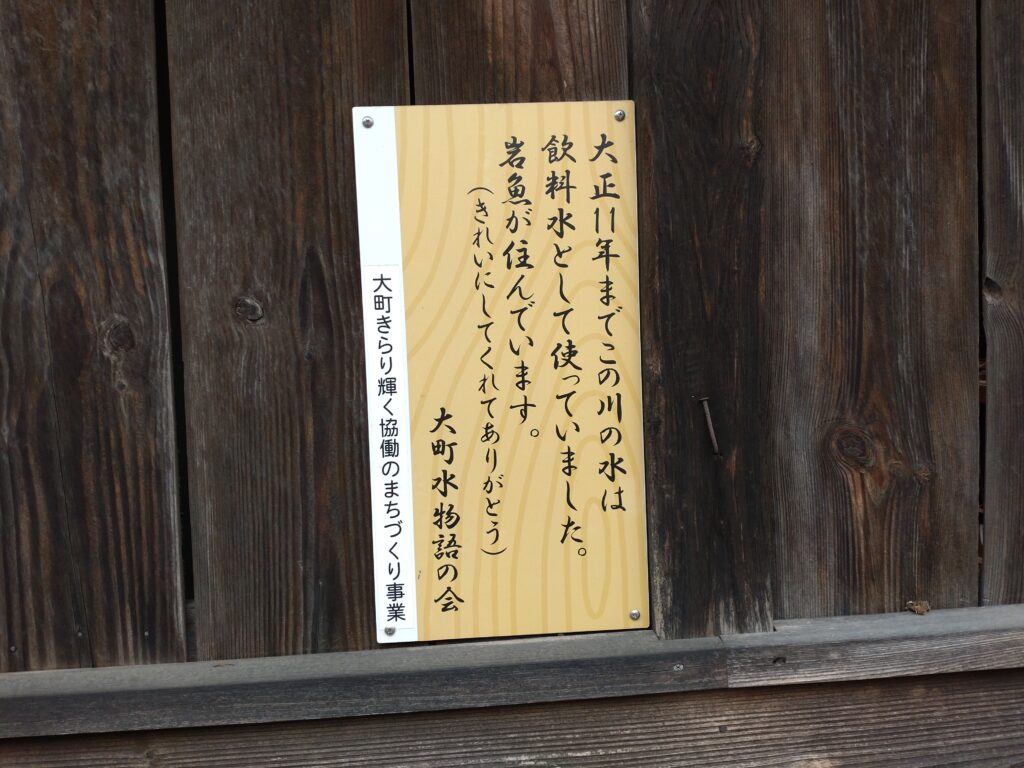 大正11年までこの川の水は
飲料水として使っていました。
岩魚が住んでいます。
（きれいにしてくれてありがとう）
大町水物語の会
大町きらり輝く協働のまちづくり事業